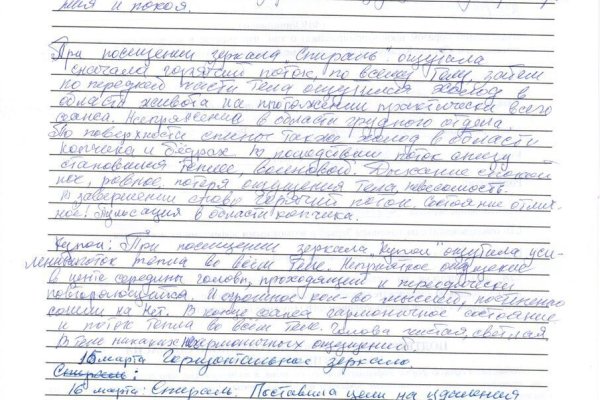 ния и покоя.
При посещении зеркала "Спираль" ощущала
сначала горячий поток, по всему телу, затем
по передней части тела ощущался холод в
области живота на протяжении практически всего
сеанса. Напряжение в области грудного отдела.
По поверхности спины также холод в области
копчика и бёдрах. В последствии поток снизу
становился теплее, волновой. Дыхание спокой
ное, ровное, потеря ощущения тела, невесомость.
В завершении снова горячий поток. Состояние отлич-
ное. Пульсация в области копчика.
Купол: При посещении зеркала "Купол" ощутила уси-
ление поток тепла во всём теле. Неприятное ощущение
в центе середины головы, проходящий и переодически
повторяющийся. И огромное кол-во мыслей, постепенно
сошли на нет. В конце сеанса гармоничное состояние
и поток тепла во всём теле. Голова чистая, светлая
В теле никаких не гармоничных ощущений.
15 марта Горизонтальное зеркало.
Спираль:
16 марта: Спираль. Поставила цели на удаления